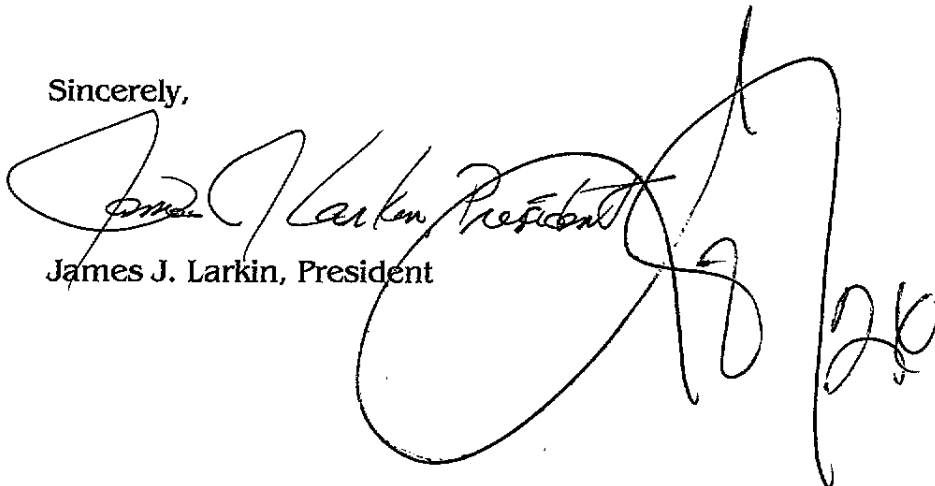 Sincerely,
James J Larkin, President
James J. Larkin, President